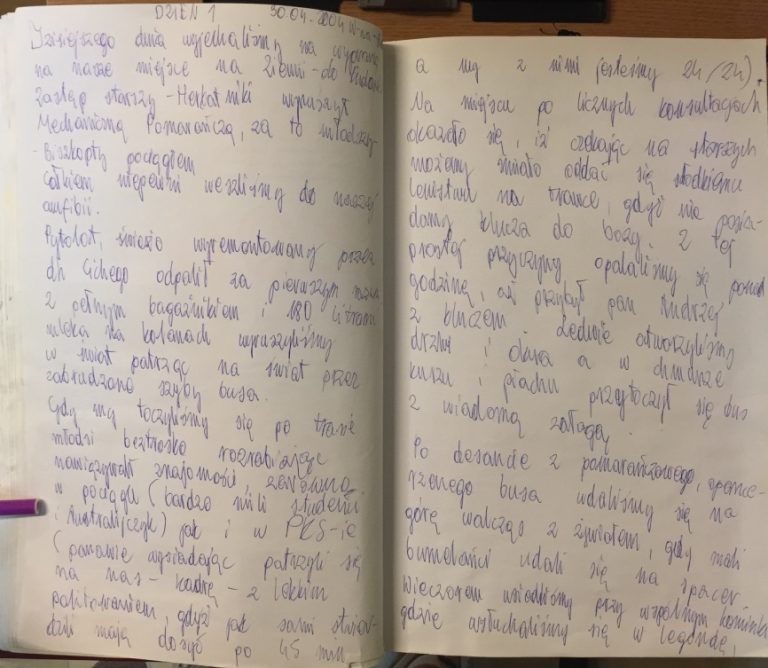 DZIEŃ 1 30.04.2004
Dzisiejszego dnia wyjechaliśmy na wyprawę
na nasze miejsce na Ziemi – do
Zastęp starszy – Herbatniki wyruszył
Mechaniczną Pomarańczą, za to młodszy
- Biszkopty pociągiem
Całkiem niepewni weszliśmy do naszej
amfibii.
Pytolot, świeżo wyremontowany przez
dh Cichego odpalił za pierwszym razem
z pełnym bagażnikiem i 180 litrami
mleka na kolanach wyruszyliśmy
w świat patrząc na świat przez
zabrudzone szyby busa.
Gdy my toczyliśmy się po trasie
młodsi beztrosko rozrabiając
nawiązywali znajomości, zarówno
w pociągu (bardzo mili studenci
i Australijczyk) jak i w PKS-ie
(panowie wysiadając patrzyli się
na nas – kadrę – z lekkim
politowaniem, gdyż jak sami stwier-
dzili mają dosyć po 45 min
a my z nimi jesteśmy 24/24).
Na miejscu po licznych konsultacjach
okazało się, iż czekając na starszych
możemy śmiało oddać się słodkiemu
lenistwu na trawce, gdyż nie posia-
damy klucza do bazy. Z tej
prostej przyczyny opalaliśmy się ponad
godzinę, aż przybył pan Andrzej
z kluczem. Ledwie otworzyliśmy
drzwi i okna a w chmurze
kurzu i piachu przytoczył się bus
z wiadomą załogą.
Po desancie z pomarańczowego,
rzonego busa udaliśmy się na
górę walcząc z żywiołem, gdy mali
bumelanci udali się na spacer
Wieczorem usiedliśmy przy wspólnym kominku
gdzie wsłuchaliśmy się w legendę,